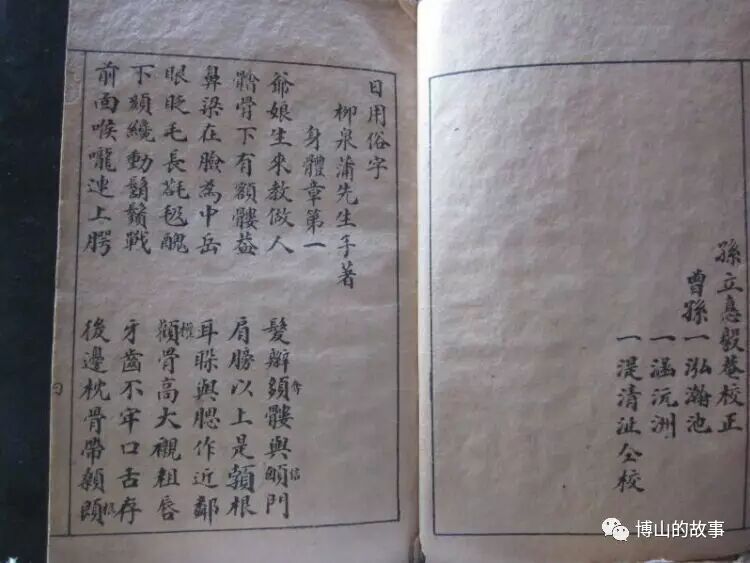 孫立悳彀菴校正
曾孫一泓瀚池
一涵沅洲
一湜清沚仝校
日用俗字
柳泉蒲先生手著
身體章第一
爺娘生來教做人 髮辮髏與顖信門
骨下有額髏蓋 肩膀以上是根
鼻梁在臉為中岳 耳與腮作近鄰
眼眨毛長醜 顴權骨高大襯粗唇
下頦纔動鬍鬚戰 牙齒不牢口舌存
前面喉嚨連上腭 後邊枕骨帶
博山的故事